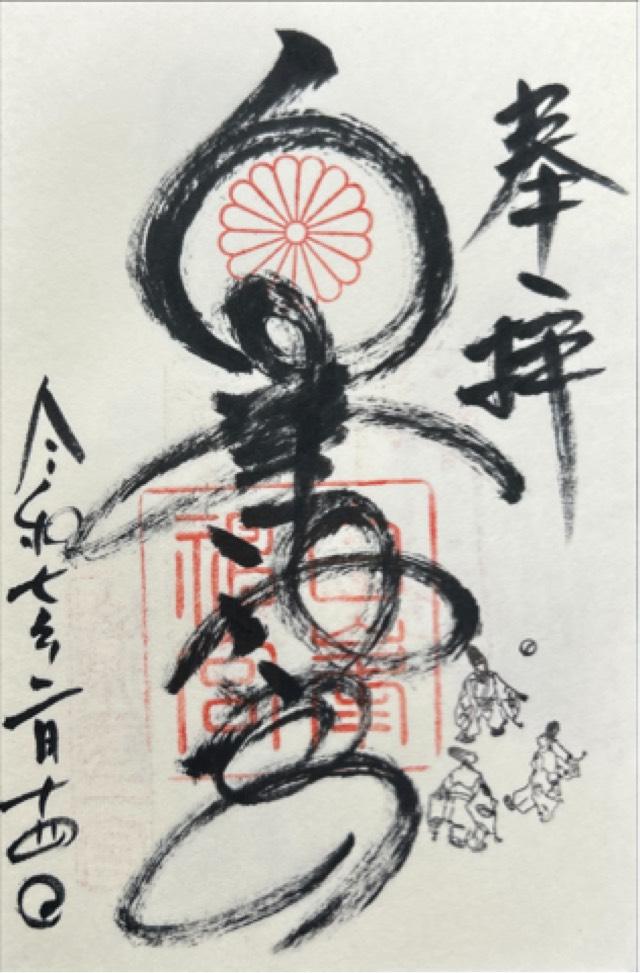 奉拝
白峯神宮
白峯
神宮
令和七年二月十四日